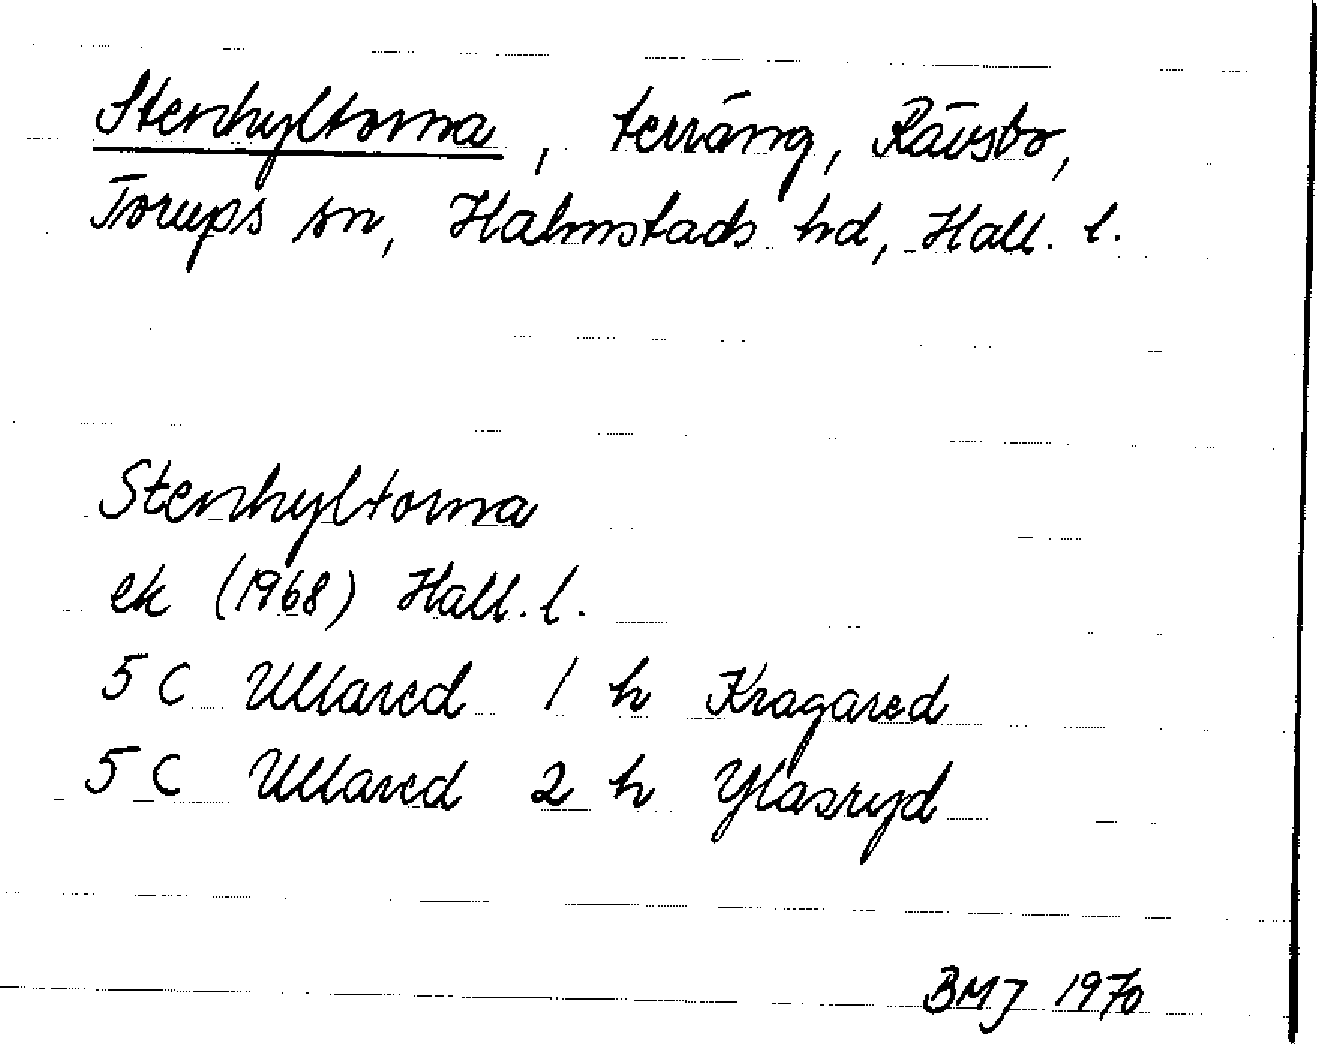 Stenhyltorna, terräng, Rävsbo,
Torups sn, Halmstads hd, Hall. l.
Stenhyltorna
ek (1968) Hall. l.
5 C Ullared 1 h Kragared
5 C Ullared 2 h Ylasryd
BMJ 1970